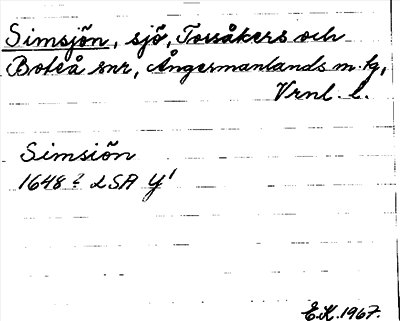 Simsjön, sjö, Torsåkers och
Boteå snr, Ångermanlands m. tg,
Vrnl. l.
Simsiön
1648 ? LSA Y¹
E.K. 1967.